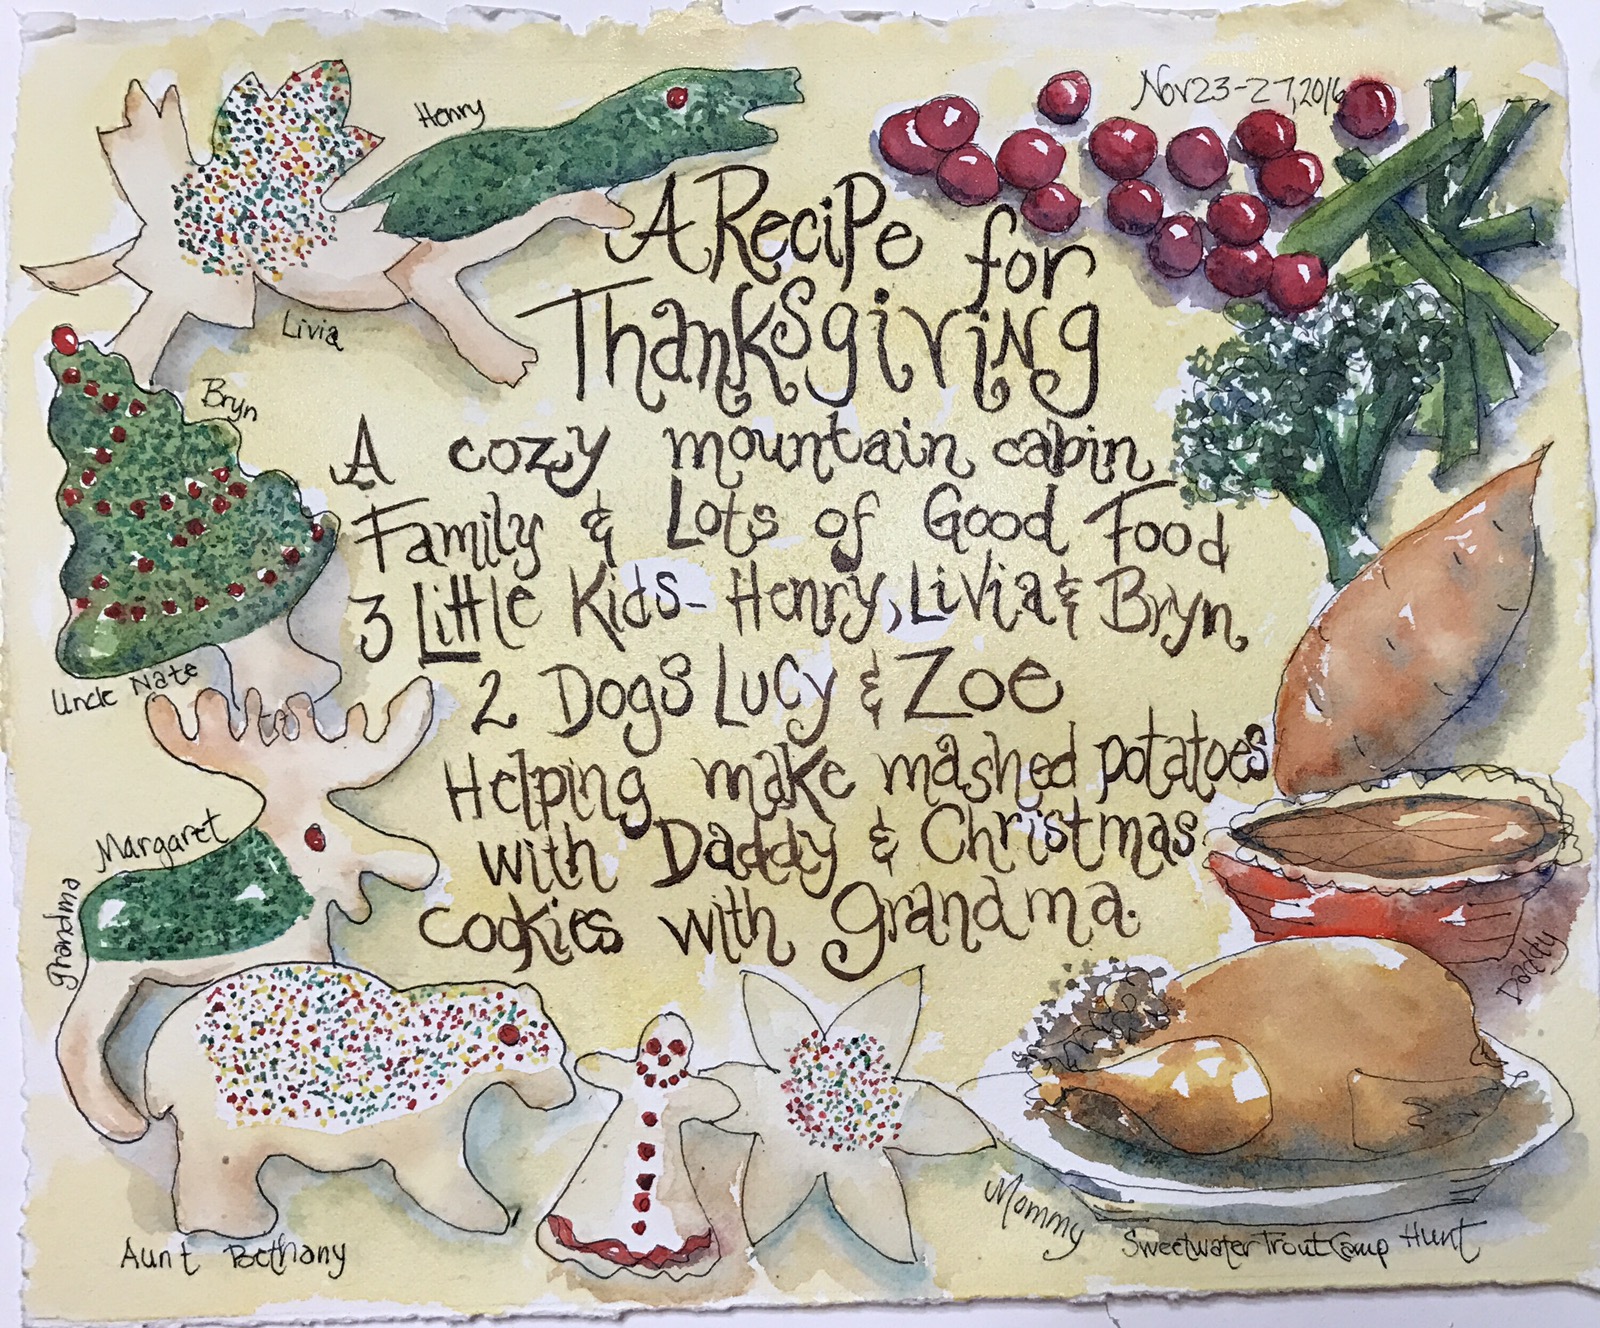 Nov 23-27, 2016
Henry
A Recipe for
Thanksgiving
Livia
Bryn
A cozy mountain cabin
Family & Lots of Good Food
3 Little Kids- Henry, Livia & Bryn
2 Dogs Lucy & Zoe
Helping make mashed potatoes
with Daddy & Christmas
cookies with Grandma.
Uncle Nate
Margaret
Grandma
Daddy
Aunt Bethany
Mommy
Sweetwater Trout Camp Hunt